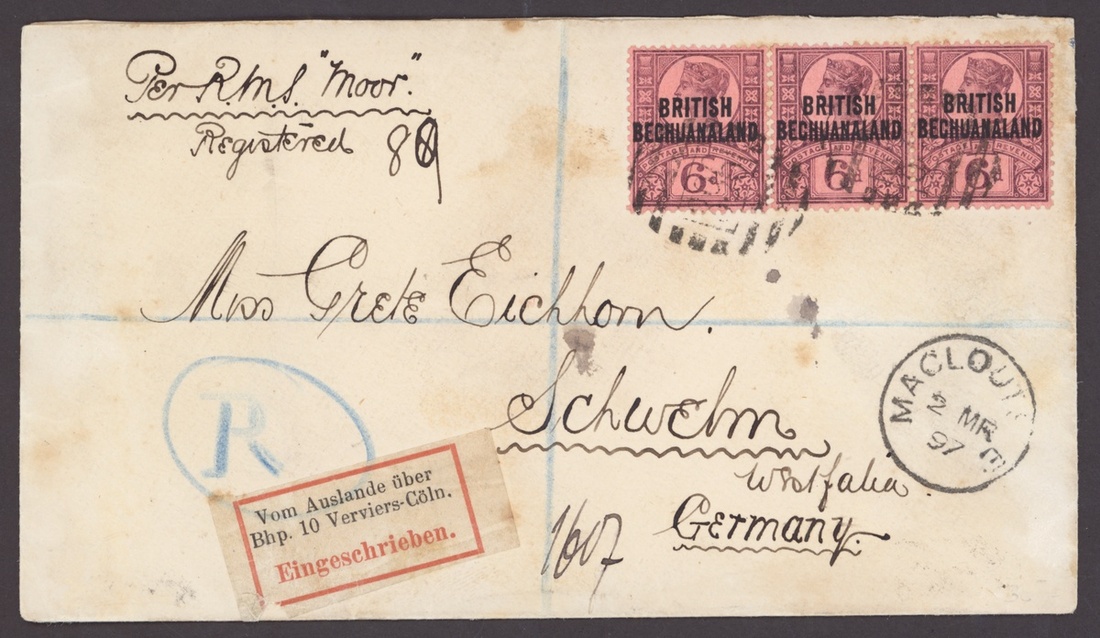 Per R.M.S. "Moor."
Registered 8
BRITISH
BECHUANALAND
POSTAGE AND REVENUE
6d
BRITISH
BECHUANALAND
POSTAGE AND REVENUE
6d
BRITISH
BECHUANALAND
POSTAGE REVENUE
6d
Miss Grete Eichhorn.
Schwelm
Westfalia
Germany.
R
Vom Auslande über
Bhp. 10 Verviers-Cöln.
Eingeschrieben.
1607
MACLOUT
2 MR
97